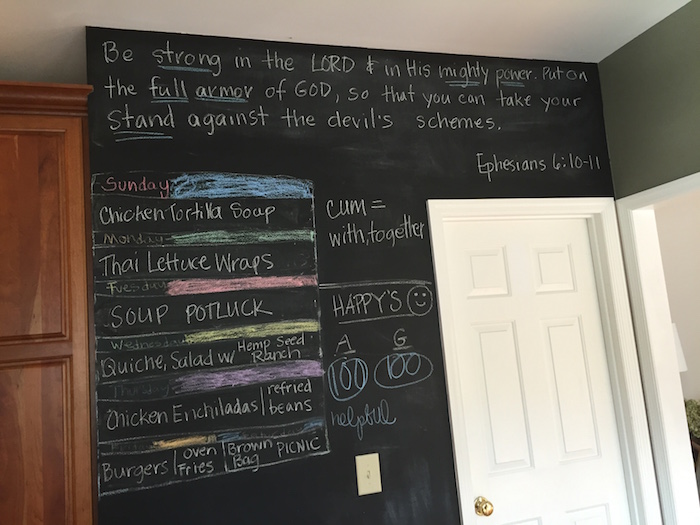 Be strong in the LORD & in His mighty power. Put on
the full armor of GOD, so that you can take your
stand against the devil's schemes.
Ephesians 6:10-11
Sunday
Chicken Tortilla Soup
Monday
Thai Lettuce Wraps
Tuesday
SOUP POTLUCK
Wednesday
Quiche, Salad w/ Hemp Seed
Ranch
Thursday
Chicken Enchiladas | refried
beans
Burgers | oven
Fries | Brown
Bag | PICNIC
cum =
with, together
HAPPY'S
A G
100 100
helpful